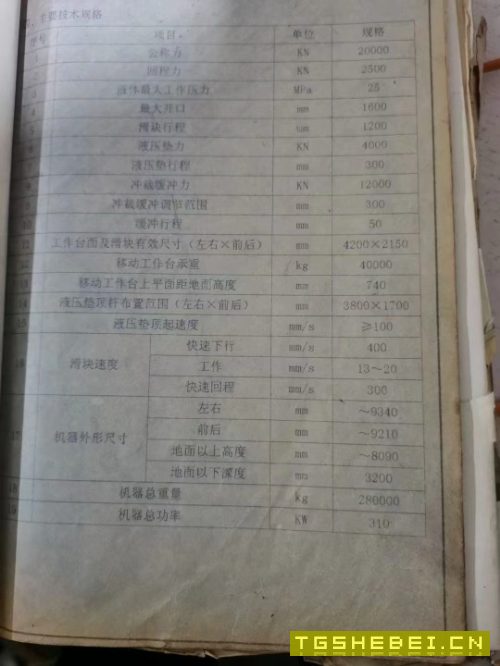 主要技术规格
序号 项目 单位 规格
1 公称力 KN 20000
2 回程力 KN 2500
液体最大工作压力 MPa 25
最大开口 mm 1600
滑块行程 mm 1200
液压垫力 KN 4000
液压垫行程 mm 300
冲裁缓冲力 KN 12000
冲裁缓冲调节范围 mm 300
10 缓冲行程 mm 50
11 工作台面及滑块有效尺寸（左右×前后） mm 4200×2150
移动工作台承重 kg 40000
移动工作台上平面距地面高度 mm 740
液压垫顶杆布置范围（左右×前后） mm 3800×1700
15 液压垫顶起速度 mm/s ≥100
16 滑块速度 快速下行 mm/s 400
工作 mm/s 13~20
快速回程 mm/s 300
17 机器外形尺寸 左右 mm ~9340
前后 mm ~9210
地面以上高度 mm ~8090
地面以下深度 mm 3200
18 机器总重量 kg 280000
19 机器总功率 KW 310
TGSHEBEI.CN